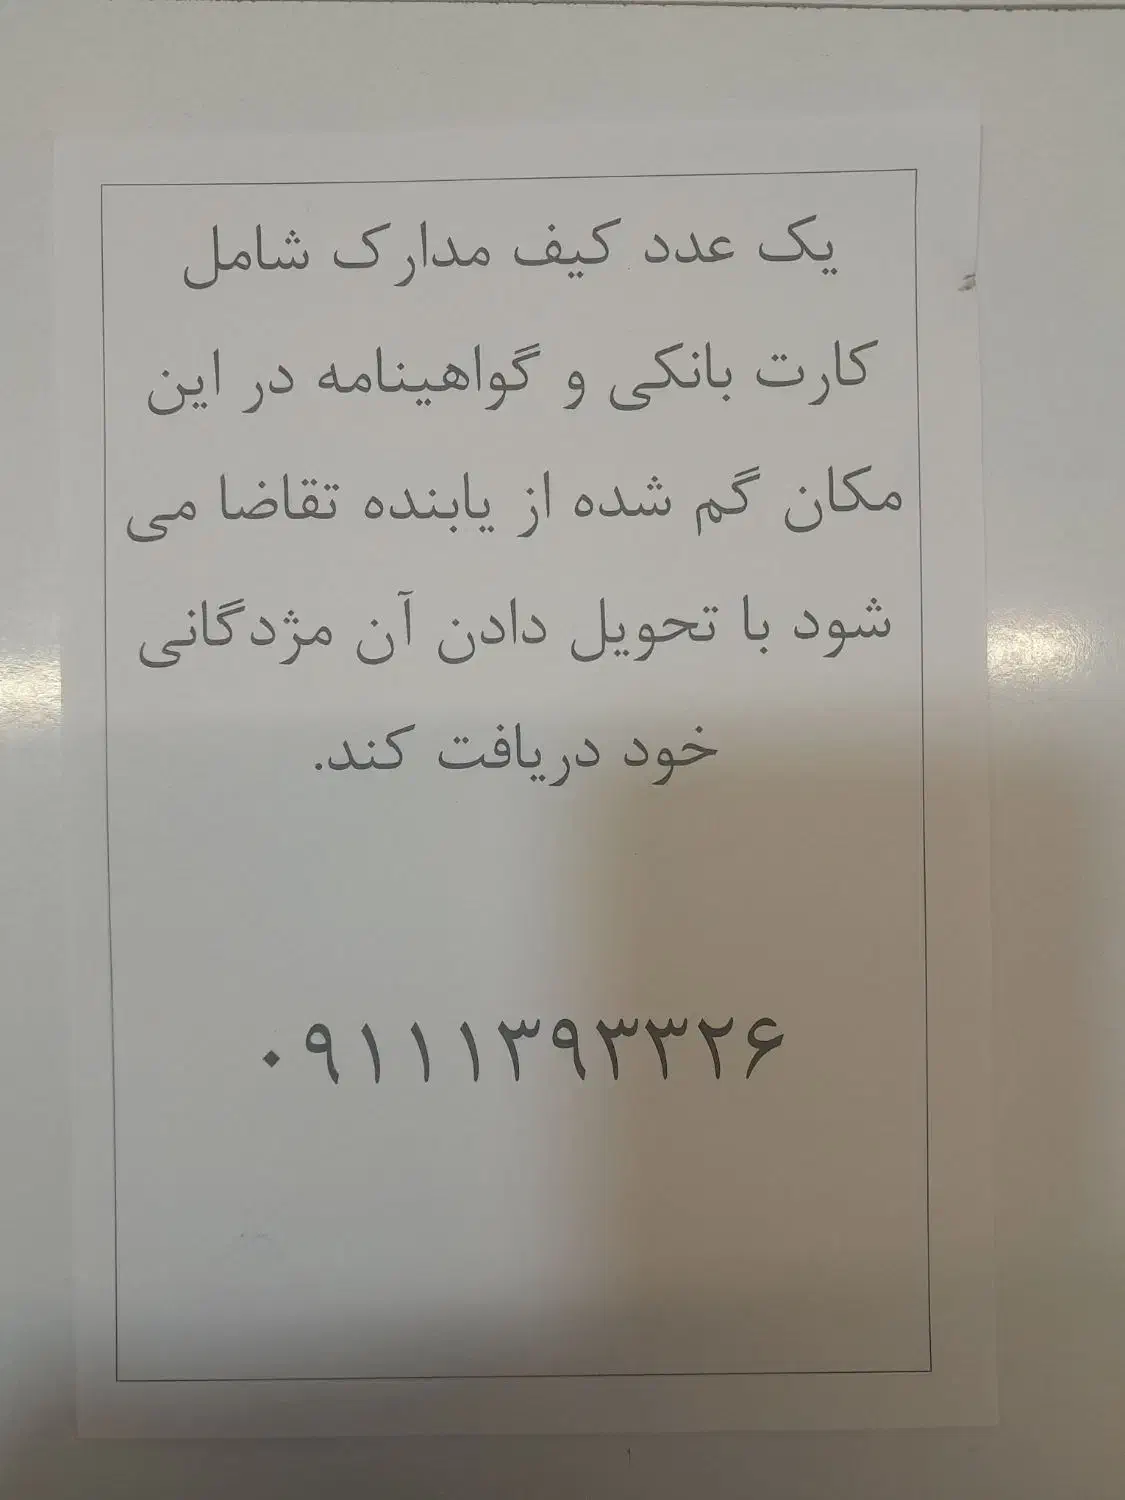 یک عدد کیف مدارک شامل
کارت بانکی و گواهینامه در این
مکان گم شده از یابنده تقاضا می
شود با تحویل دادن آن مژدگانی
خود دریافت کند.
۰۹۱۱۱۳۹۳۳۲۶